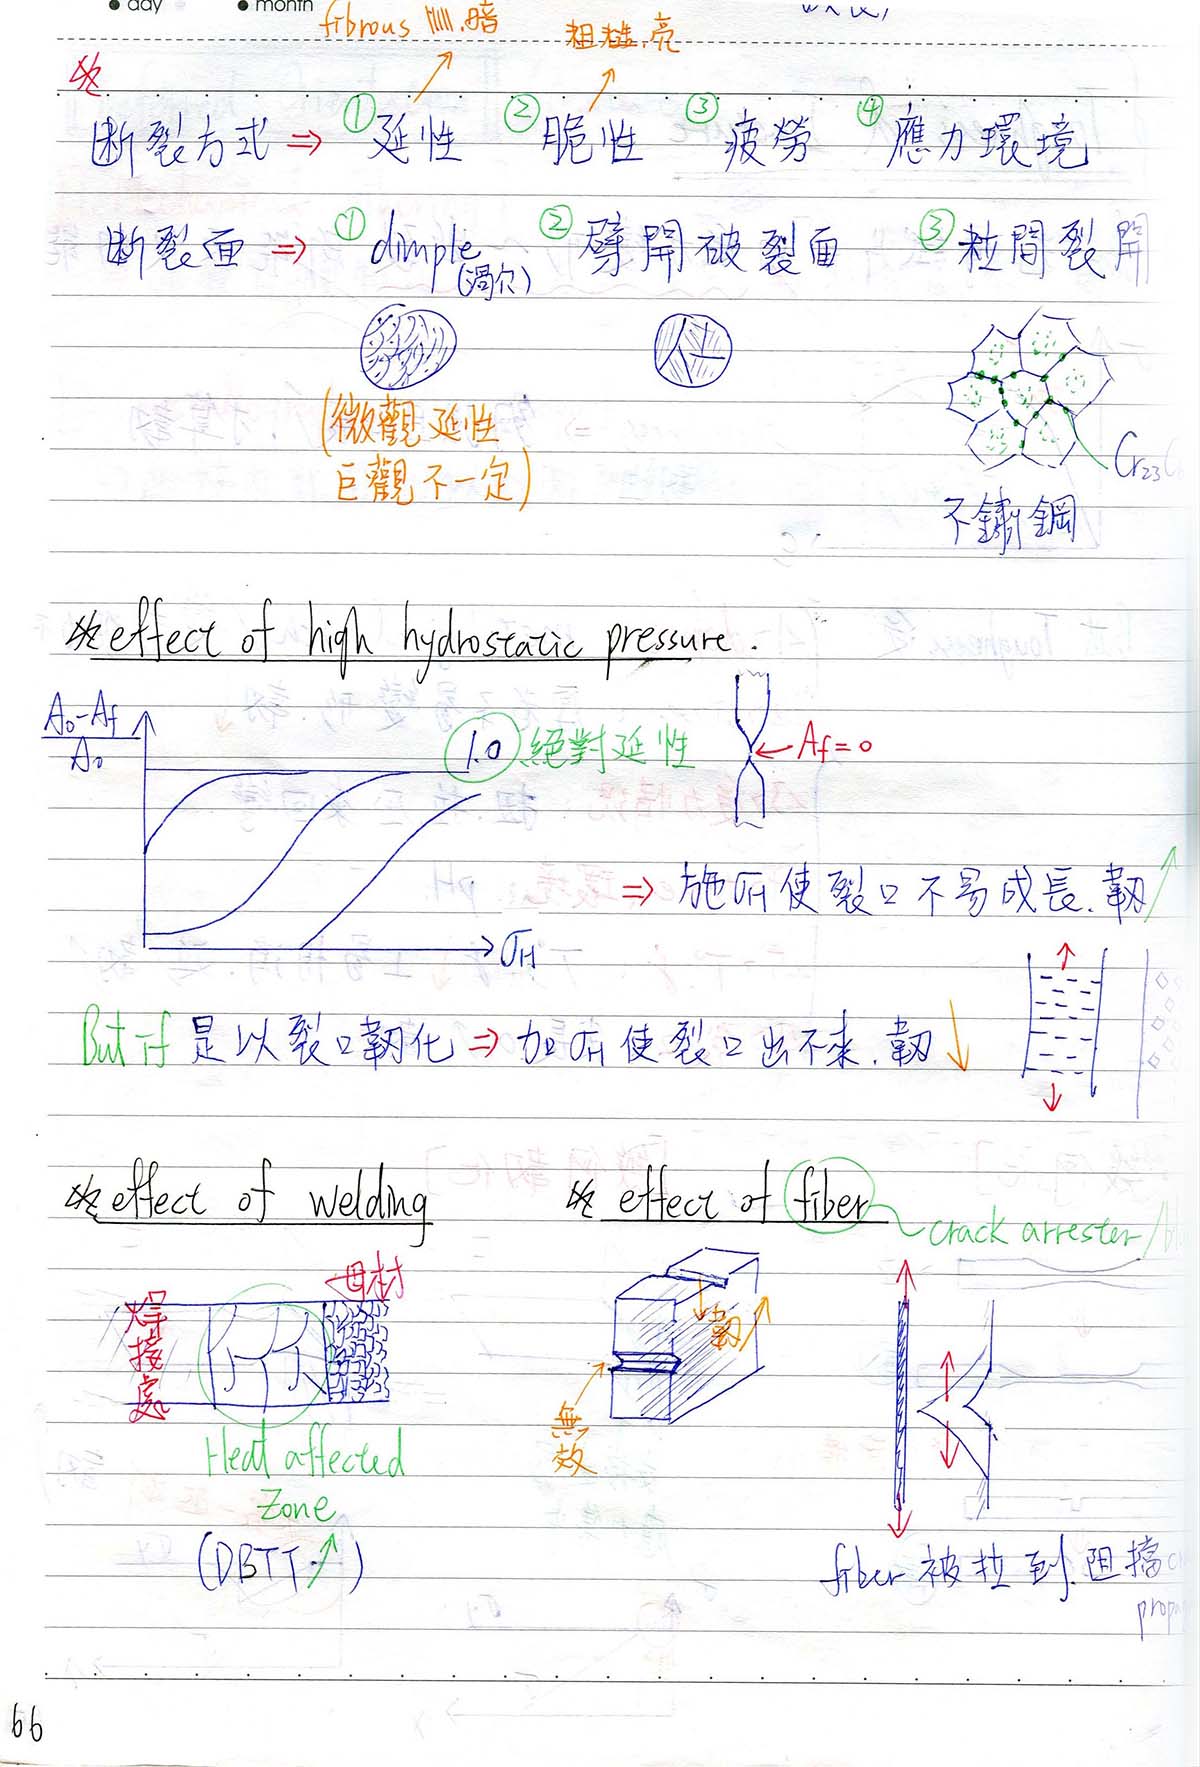 day month
fibrous 暗 粗糙.亮
断裂方式 ⇒ ① 延性 ② 脆性 ③ 疲勞 ④ 應力環境
断裂面 ⇒ ① dimple ② 劈開破裂面 ③ 粒間裂開
(渦穴)
(微觀延性
巨觀不一定)
Cr23
不鏽鋼
effect of high hydrostatic pressure.
A0-Af
A0
1.0 絕對延性
← Af=0
⇒ 施σH使裂口不易成長.韌↗
→σH
But if 是以裂口韌化⇒加σH使裂口出不來.韌↓
effect of welding effect of fiber
crack arrester/
母材
焊接處
韌↗
無效
Heat affected
Zone
(DBTT↗)
fiber 被拉到.阻擋
66